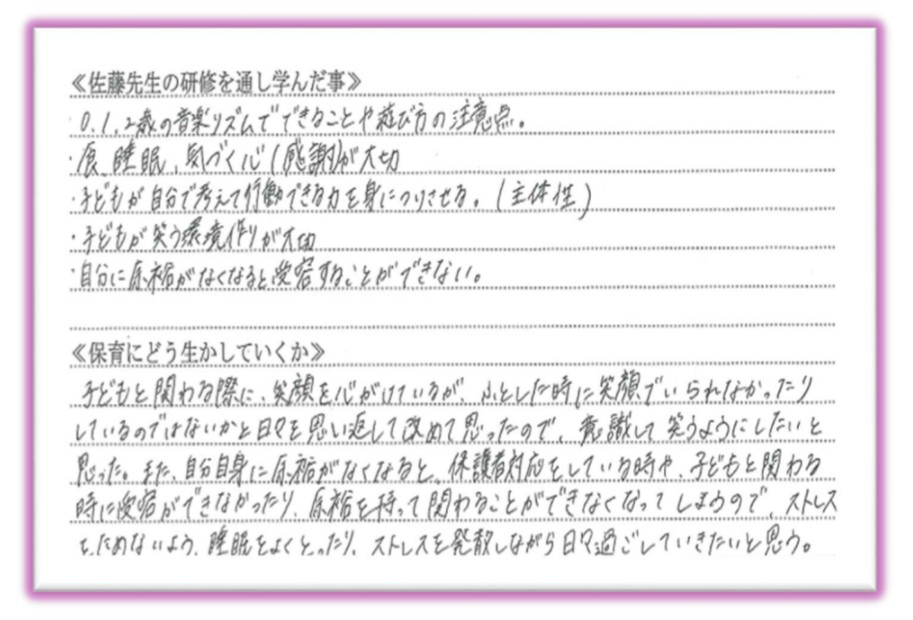 ≪佐藤先生の研修を通し学んだ事≫
・0.1.2歳の音楽リズムでできることや遊び方の注意点。
・食、睡眠、気づく心(感謝)が大切
・子どもが自分で考えて行動できる力を身につけさせる。(主体性)
・子どもが笑う環境作りが大切
・自分に余裕がなくなると受容することができない。
≪保育にどう生かしていくか≫
子どもと関わる際に、笑顔を心がけているが、ふとした時に笑顔でいられなかったり
しているのではないかと日々を思い返して改めて思ったので、意識して笑うようにしたいと
思った。また、自分自身に余裕がなくなると、保護者対応をしている時や、子どもと関わる
時に受容ができなかったり、余裕を持って関わることができなくなってしまうので、ストレス
をためないよう、睡眠をよくとったり、ストレスを発散しながら日々過ごしていきたいと思う。